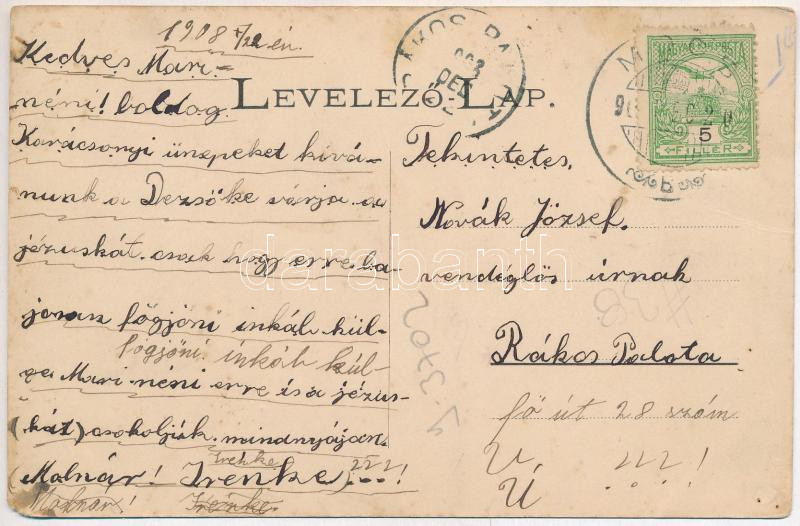 1908 /22 én.
Kedves Mari-
néni! boldog
Karácsonyi ünepeket kivá-
nunk a Dezsőke várja a
jézuskát. csak hogy erre ba-
josan fögjöni inkáb kül-
fögjöni inkáb kül-
ge Mari néni erre is a jézus-
(kát) csokoljuk. mindnyájan
Irénke
(Molnár! Irenke)
Molnár! Irénke
LEVELEZŐ-LAP.
RÁKOS PALOTA
DEC
MAGYAR KIR. POSTA
5
FILLÉR
Tekintetes,
Novák József.
vendéglős úrnak
Rákos Palota
fő út 28 szám
U !!!
Ú
darabanth